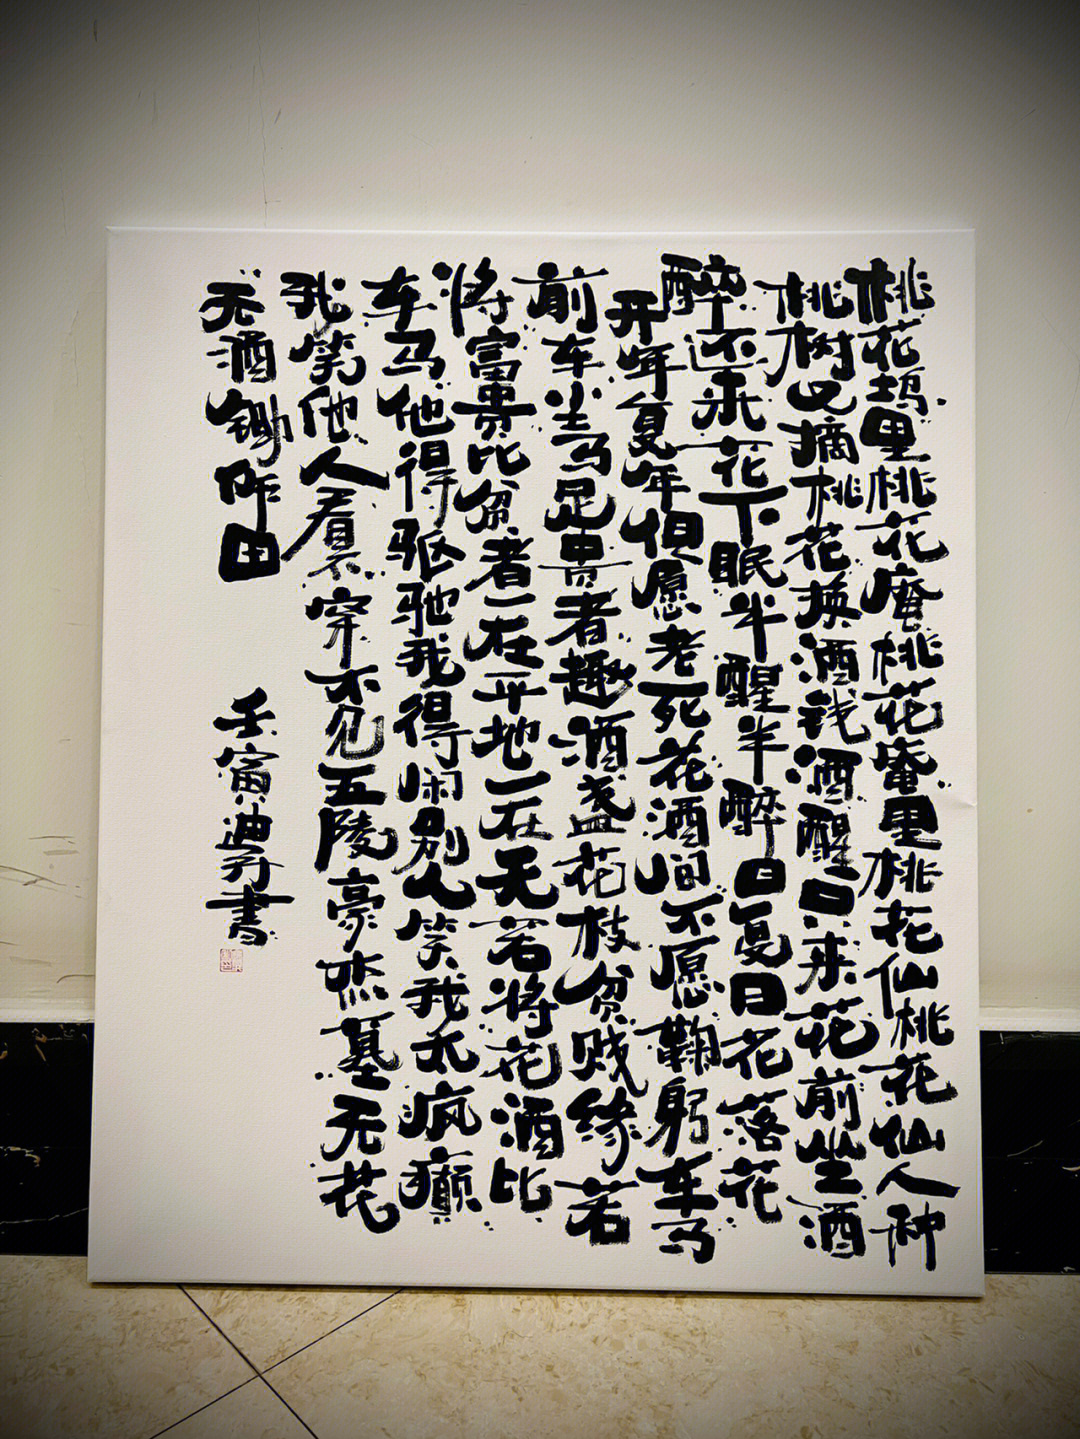 桃花坞里桃花庵桃花庵里桃花仙桃花仙人种
桃树又摘桃花换酒钱酒醒只来花前坐酒
醉还来花下眠半醒半醉日复日花落花
开年复年但愿老死花酒间不愿鞠躬车马
前车尘马足贵者趣酒盏花枝贫贱缘若
将富贵比贫者一在平地一在天若将花酒比
车马他得驱驰我得闲别人笑我太疯癫
我笑他人看不穿不见五陵豪杰墓无花
无酒锄作田
壬寅迪书